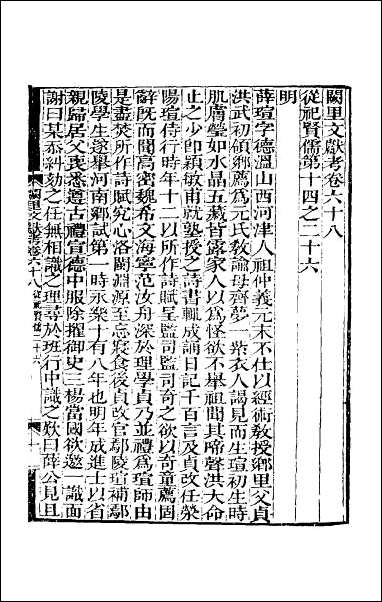 闕里文獻考卷六十八
從祀賢儒第十四之二十六
明
薛瑄字德溫山西河津人祖仲義元末不仕以經術教授鄉里父貞
洪武初領鄉薦為元氏教諭母齊夢一紫衣人謁見而生瑄初生時
肌膚瑩如水晶五藏皆露家人以為怪欲不舉祖聞其啼聲洪大命
止之少即穎敏甫就塾授之詩書輒成誦日記千百言及貞改任滎
陽瑄侍行時年十二以所作詩賦呈監司監司奇之欲以奇童薦固
辭既而聞高密魏希文海寧范汝舟深於理學貞乃並禮為瑄師由
是盡焚所作詩賦究心洛閩淵源至忘寢食後貞改官鄢陵瑄補鄢
陵學生遂舉河南鄉試第一時永樂十有八年也明年成進士以省
親歸居父喪悉遵古禮宣德中服除擢御史三楊當國欲邀一識面
謝曰某忝糾劾之任無相識之理尋於班行中識之歎曰薛公見且
闕里文獻考卷六十八 從祀賢儒二十六 一